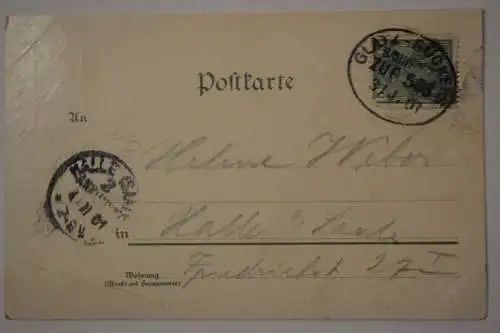 Postkarte
GLATZ - RÜCKERS
BAHNPOST
ZUG 5
31.1.01
An
Helene Weber
HALLE (SAALE)
2
1.2.01
in
Halle a/Saale
Friedrichst 27 I
Wohnung
(Straße und Hausnummer)